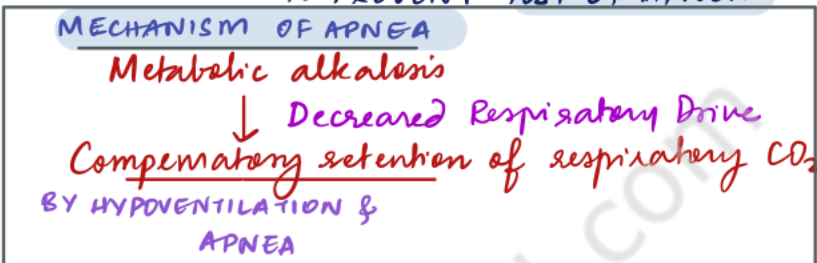 MECHANISM OF APNEA
Metabolic alkalosis
↓ Decreased Respiratory Drive
Compensatory retention of respiratory CO₂
BY HYPOVENTILATION &
APNEA
com